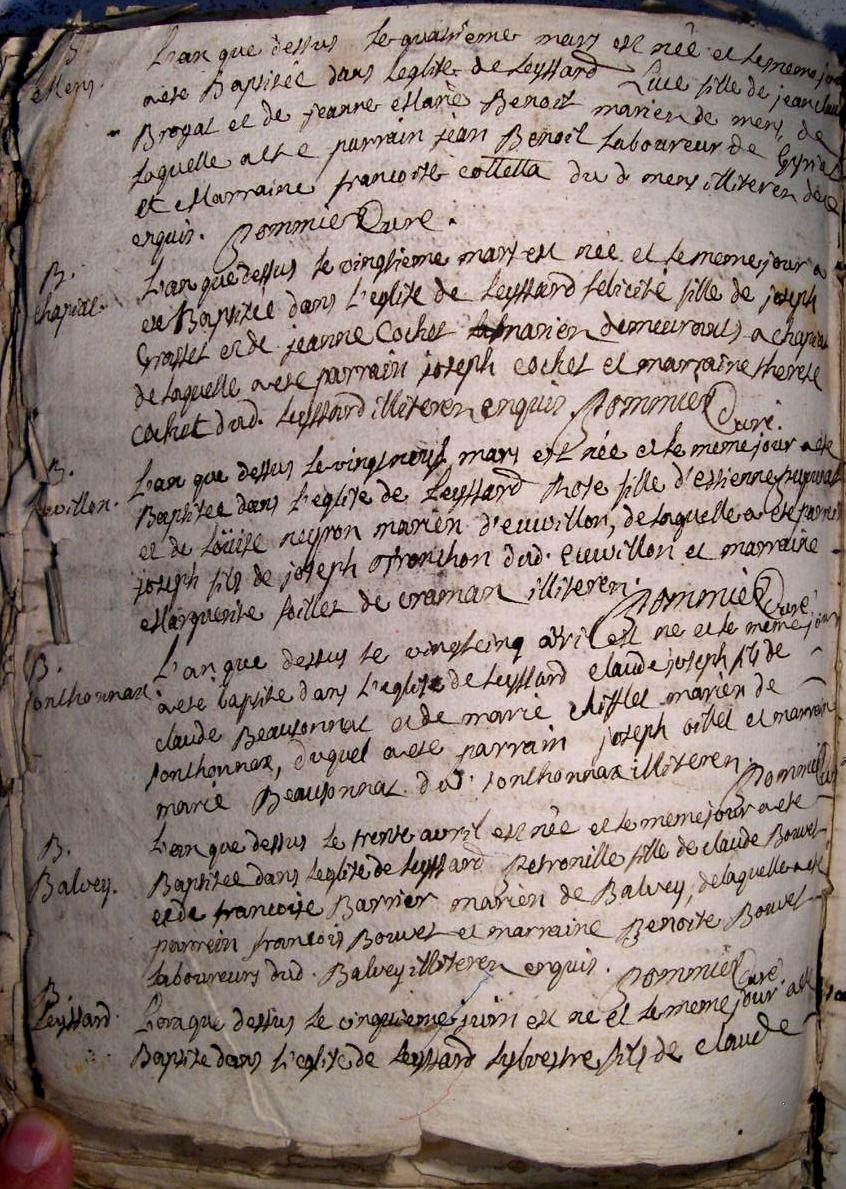 B. L'an que dessus le quatrieme mars est née et le meme jour
Mens. a ete Baptisée dans l'eglise de Leyssard Luce fille de jean claude
Brogat et de jeanne Marie Benoit mariez de mens, de
laquelle a ete parrain jean Benoit Laboureur de
et Marraine francoise colletta du d mens illiteres de ce
enquis. Pommier Curé.
B. L'an que dessus le vingtieme mars est née et le meme jour a
chapiat. ete Baptisée dans l'eglise de Leyssard felicité fille de joseph
Grasset et de jeanne Cochet mariez demeurants a chapiat
de laquelle a ete parrain joseph cochet et marraine therese
cochet dud. Leyssard illiteres enquis Pommier Curé.
B. L'an que dessus le vingt neuf mars est née et le meme jour a ete
Baptisée dans l'eglise de Leyssard Rose fille d'estienne
et de Loüise neyron mariez d'euvillon, de laquelle a ete parrain
joseph fils de joseph dud. Euvillon et marraine
Marguerite foillet de craman illiteres. Pommier Curé
B. L'an que dessus le vingt cinq avril est né et le meme jour
Sonthonnax a ete baptisé dans l'eglise de Leyssard claude joseph fils de
claude Beausonnat et de marie chifflet mariez de
Sonthonnax, duquel a ete parrain joseph et marraine
marie Beausonnat dud. Sonthonnax illiteres. Pommier Curé
B. L'an que dessus le trente avril est née et le meme jour a ete
Balvey. Baptisée dans l'eglise de Leyssard Petronille fille de claude Bouvet
et de francoise Barrier mariez de Balvey, de laquelle a ete
parrein francois Bouvet et marraine Benoite Bouvet
laboureurs dud. Balvey illiteres enquis. Pommier Curé
B. L'an que dessus le cinquieme juin est né et le meme jour a ete
Leyssard Baptisé dans l'eglise de Leyssard Sylvestre fils de claude